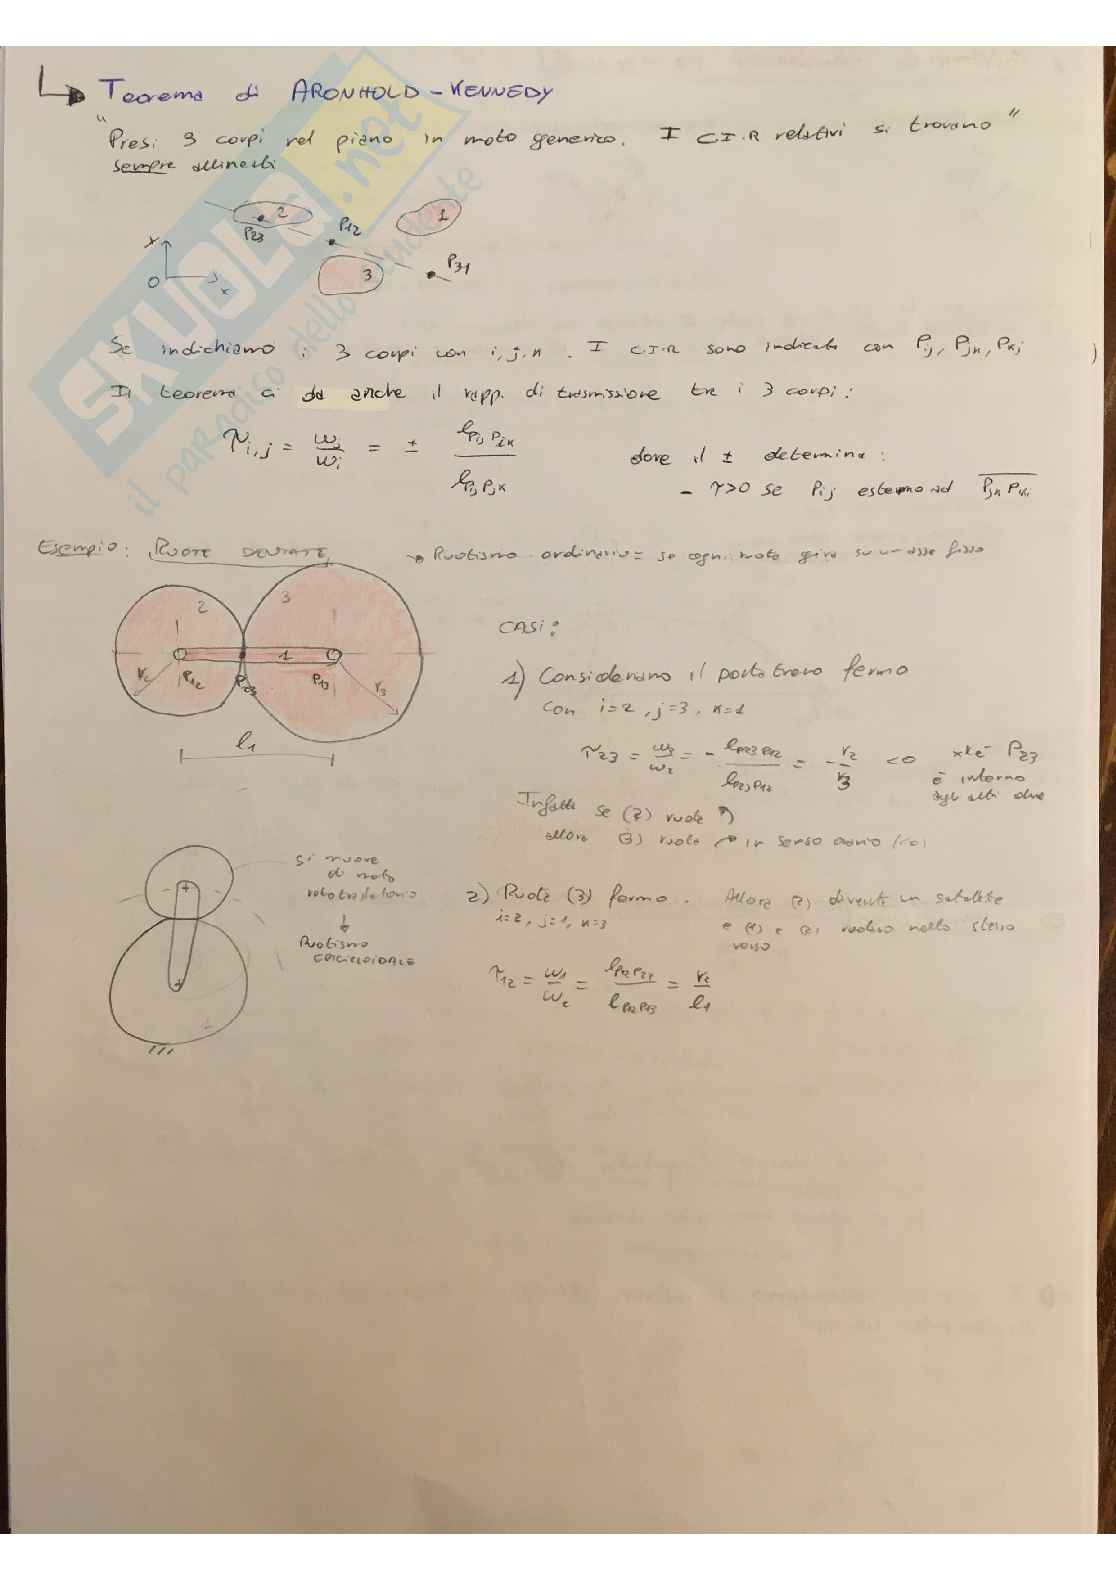 Teorema di ARONHOLD-KENNEDY
"Presi 3 corpi nel piano in moto generico. I C.I.R relativi si trovano"
sempre allineati
2
1
P23
P12
3
P31
O
x
Se indichiamo i 3 corpi con i,j,k. I C.I.R sono indicati con Pij, Pjk, Pkj
Il teorema ci da anche il rapp. di trasmissione tra i 3 corpi:
τi,j = ωj/ωi = ± lPijPik / lPijPjk
dove il ± determina:
- τ>0 se Pij esterno ad PjkPki
Esempio: RUOTE DENTATE
→ Ruotismo ordinario = se ogni ruota gira su un asse fisso
2
3
1
r2
P12
P23
P13
r3
l1
CASI:
1) Consideriamo il portatreno fermo
con i=2, j=3, k=1
τ23 = ω3/ω2 = - lP23P12 / lP23P13 = - r2/r3 <0 xkè P23
è interno
agli altri due
Infatti se (2) ruota ↰
allora (3) ruota in senso orario (<0)
si muove
di moto
rototraslatorio
↓
Ruotismo
EPICICLOIDALE
2) Ruota (3) fermo. Allora (2) diventa un satellite
i=2, j=1, k=3 e (1) e (2) ruotano nello stesso
verso
τ12 = ω1/ω2 = lP12P23 / lP12P13 = r2/l1
SKUOLA.net
il paradiso dello studente